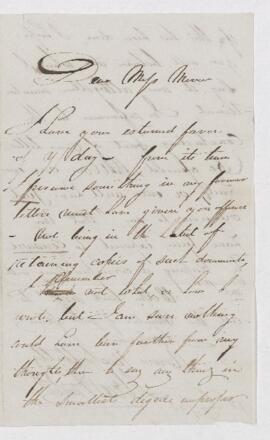 Dear Miss Mercer
I have your esteemed favor
of Yday - from its tenor
I presume something in my former
letter must have given you offence
- Not being in the habit of
retaining copies of such documents,
I remember
not what or how I
wrote, but I am sure nothing
could have been further from my
thoughts, than to say any thing in
the smallest degree improper